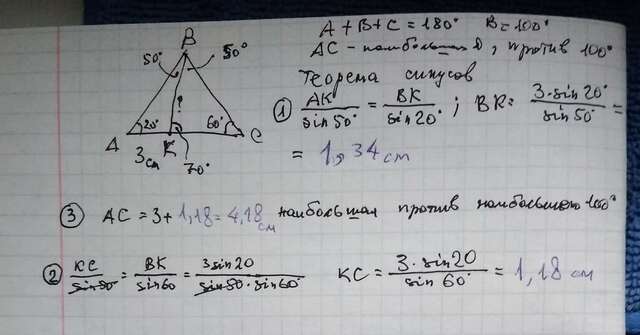 A + B + C = 180° B = 100°
AC - наибольшая, против 100°
Теорема синусов
① AK/sin50° = BK/sin20° ; BK = 3·sin20°/sin50° =
= 1,34 см
B
50° 50°
?
20° 60°
A K C
3 см 70°
③ AC = 3 + 1,18 = 4,18 см наибольшая против наибольшего 100°
② KC/sin50° = BK/sin60 = 3sin20/sin50·sin60° KC = 3·sin20/sin60° = 1,18 см